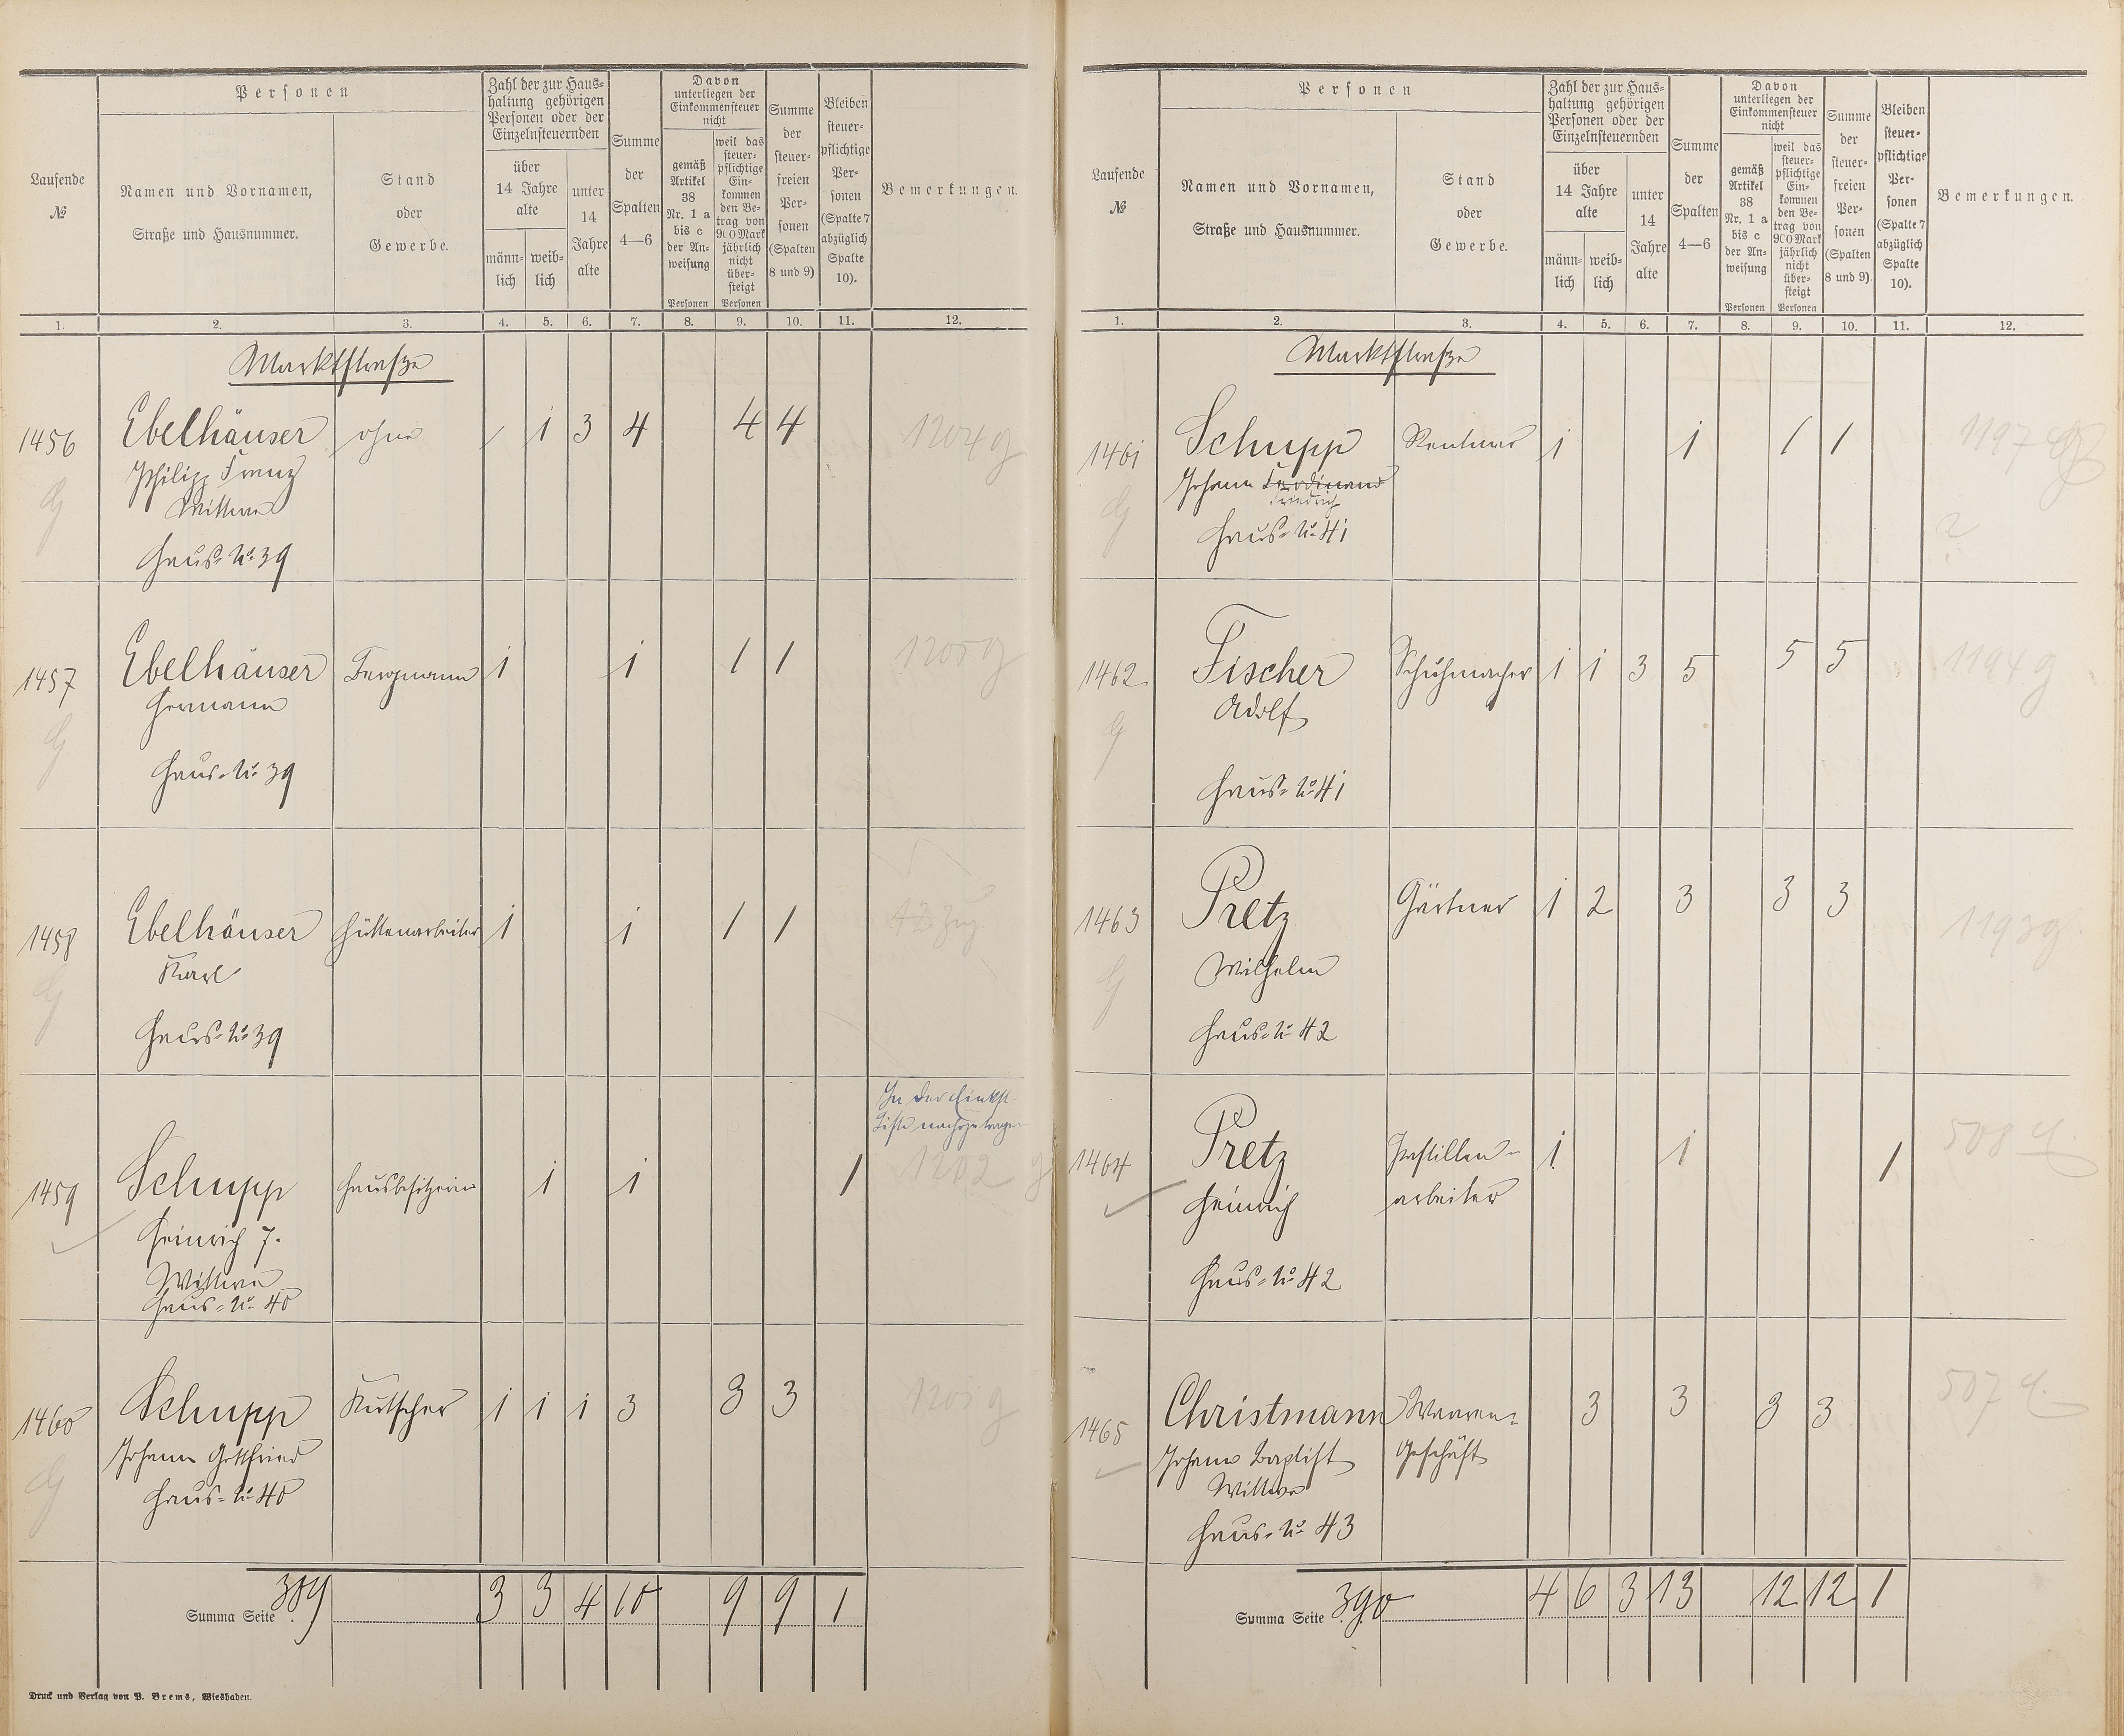 Laufende
№
Personen
Namen und Vornamen,
Straße und Hausnummer.
Stand
oder
Gewerbe.
Zahl der zur Haus-
haltung gehörigen
Personen oder der
Einzelnsteuernden
über
14 Jahre
alte
männ-
lich
weib-
lich
unter
14
Jahre
alte
Summe
der
Spalten
4—6
Davon
unterliegen der
Einkommensteuer
nicht
gemäß
Artikel
38
Nr. 1 a
bis c
der An-
weisung
Personen
weil das
steuer-
pflichtige
Ein-
kommen
den Be-
trag von
900 Mark
jährlich
nicht
über-
steigt
Personen
Summe
der
steuer-
freien
Per-
sonen
(Spalten
8 und 9)
Bleiben
steuer-
pflichtige
Per-
sonen
(Spalte 7
abzüglich
Spalte
10).
Bemerkungen.
1. 2. 3. 4. 5. 6. 7. 8. 9. 10. 11. 12.
Marktstraße
1456 Ebelhäuser ohne / 1 3 4 4 4 1204 g
Philipp Franz
Wittwe
Haus-No 39
1457 Ebelhäuser Bergmann 1 1 1 1 1205 g
Hermann
Haus-No 39
1458 Ebelhäuser Hüttenarbeiter 1 1 1 1
Karl
Haus-No 39
In der Einkst.
Liste nachzutragen
1459 Schupp Hausbesitzerin 1 1 1 1202 g
Heinrich 7.
Wittwe
Haus-No 40
1460 Schupp Kutscher 1 1 1 3 3 3 1201 g
Johann Gottfried
Haus-No 40
Summa Seite 389 3 3 4 10 9 9 1
Druck und Verlag von P. Brems, Wiesbaden.
Laufende
№
Personen
Namen und Vornamen,
Straße und Hausnummer.
Stand
oder
Gewerbe.
Zahl der zur Haus-
haltung gehörigen
Personen oder der
Einzelnsteuernden
über
14 Jahre
alte
männ-
lich
weib-
lich
unter
14
Jahre
alte
Summe
der
Spalten
4—6
Davon
unterliegen der
Einkommensteuer
nicht
gemäß
Artikel
38
Nr. 1 a
bis c
der An-
weisung
Personen
weil das
steuer-
pflichtige
Ein-
kommen
den Be-
trag von
900 Mark
jährlich
nicht
über-
steigt
Personen
Summe
der
steuer-
freien
Per-
sonen
(Spalten
8 und 9).
Bleiben
steuer-
pflichtige
Per-
sonen
(Spalte 7
abzüglich
Spalte
10).
Bemerkungen.
1. 2. 3. 4. 5. 6. 7. 8. 9. 10. 11. 12.
Marktstraße
1461 Schupp Rentner 1 1 1 1 1197
Johann Ferdinand
Friedrich
Haus-No 41
?
1462 Fischer Schuhmacher 1 1 3 5 5 5 1194 g
Adolf
Haus-No 41
1463 Pretz Gärtner 1 2 3 3 3 1193 g
Wilhelm
Haus-No 42
1464 Pretz Pastillen- 1 1 1 508
Heinrich arbeiter
Haus-No 42
1465 Christmann Waaren- 3 3 3 3 507
Johann Baptist Geschäft
Wittwe
Haus-No 43
Summa Seite 390 4 6 3 13 12 12 1